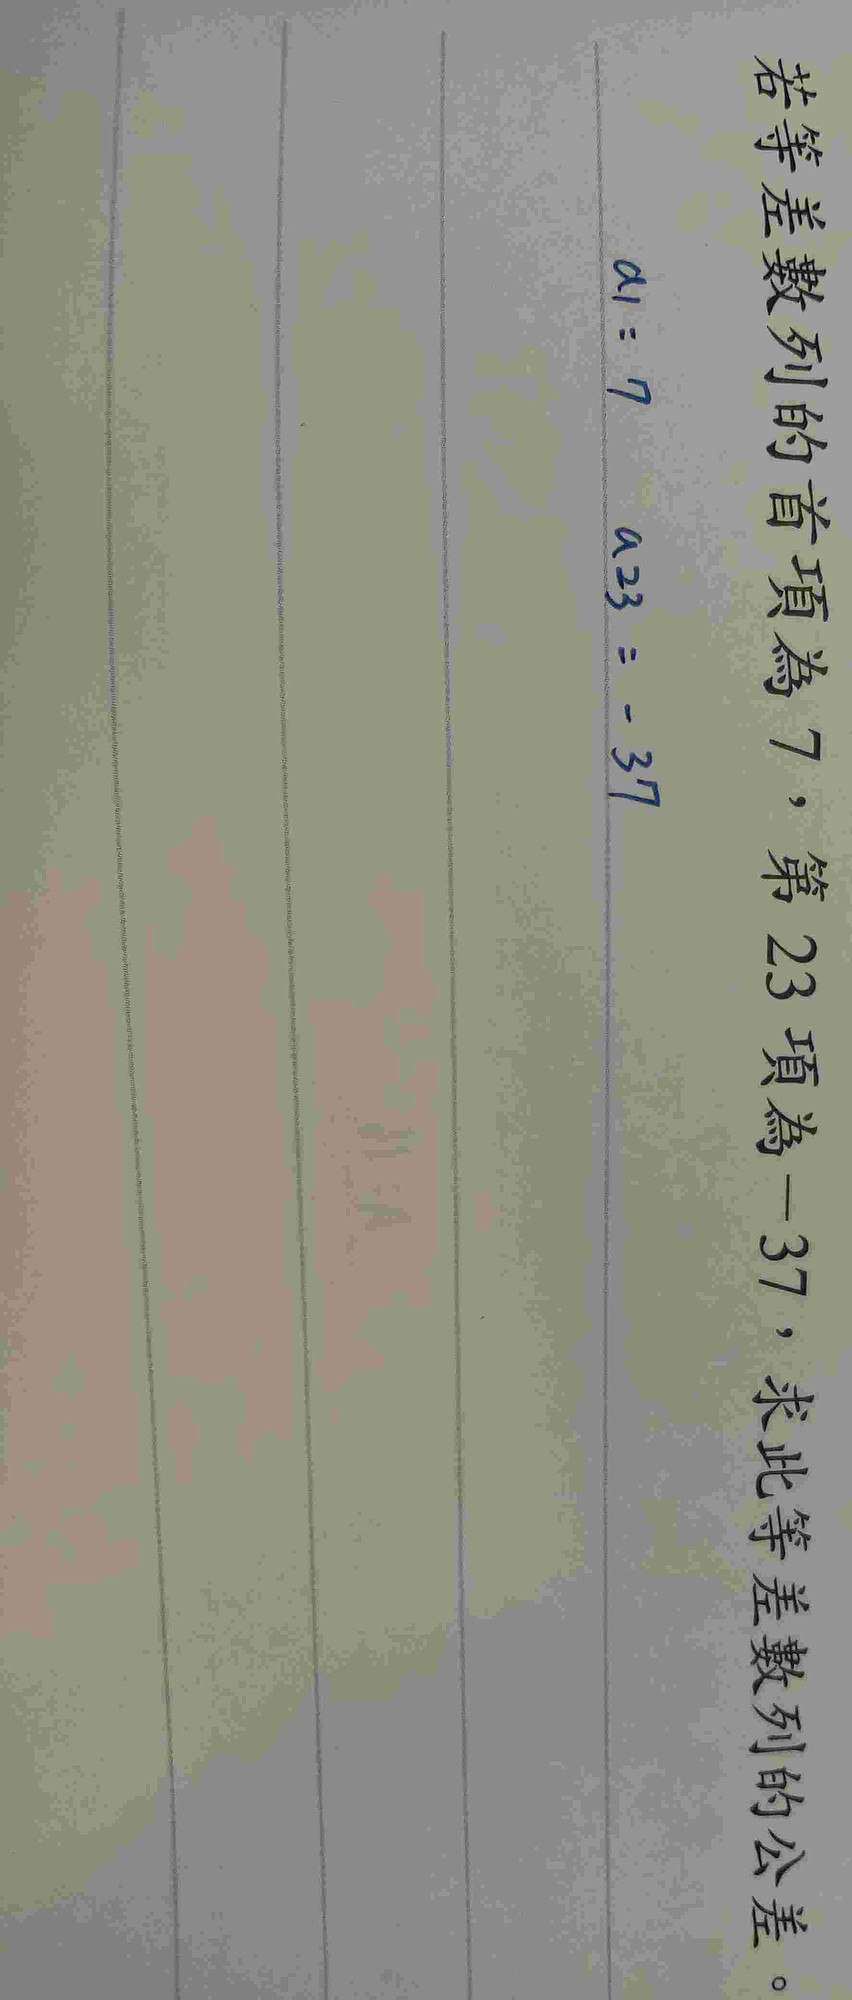 若等差數列的首項為7，第23項為－37，求此等差數列的公差。
a1=7 a23=-37